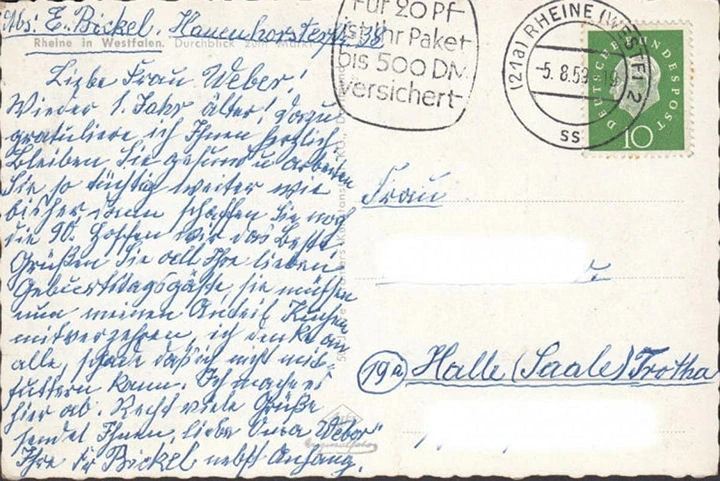 Abs: E. Bickel, Hauenhorsterstr. 38
Rheine in Westfalen. Durchblick zum Markt
Liebe Frau Weber!
Wieder 1. Jahr älter! Dazu
gratuliere ich Ihnen herzlich.
Bleiben Sie gesund u. arbeiten
Sie so tüchtig weiter wie
bisher dann schaffen Sie noch
die 90. Hoffen wir das Beste
Grüßen Sie all Ihre lieben
Geburtstagsgäste sie müssen
nun meinen Anteil Kuchen
mitverzehren, ich denke an
alle, schade daß ich nicht mit-
futtern kann. Ich mache es
hier ab. Recht viele Grüße
sendet Ihnen, liebe Oma Weber
Ihre Fr. Bickel nebst Anhang.
Für 20 Pf-
ist Ihr Paket
bis 500 DM
versichert
(21a) RHEINE (WESTF) 2
-5. 8.59
ss
DEUTSCHE BUNDESPOST
10
Frau
19a Halle (Saale) Trotha